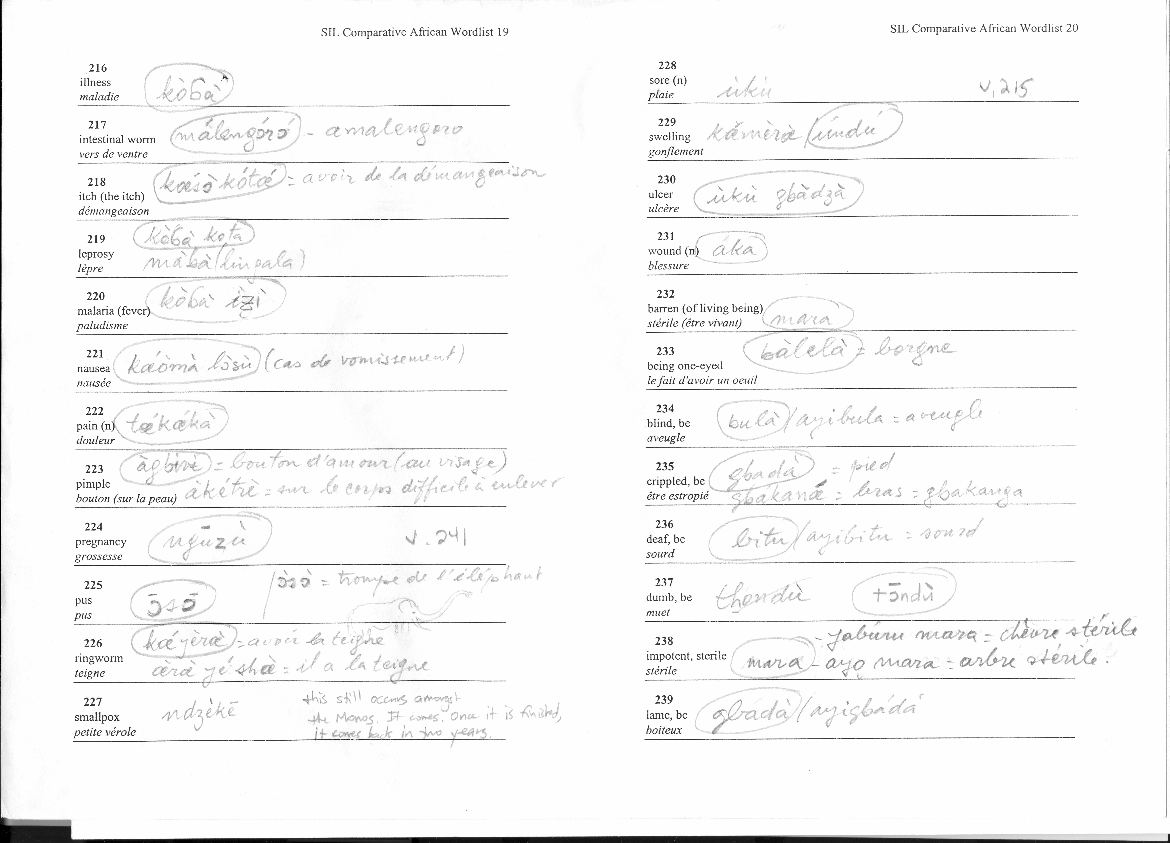 SIL Comparative African Wordlist 19
216
illness
maladie
kòɓà
217
intestinal worm
vers de ventre
málengóró - amalengoro
218
itch (the itch)
démangeaison
kœ́sɔ̀ kótœ́ = avoir de la démangeaison
219
leprosy
lèpre
kòɓà kota
màbà (lingala)
220
malaria (fever)
paludisme
kòɓà ìzì
221
nausea
nausée
kœ́òmà lɔ̀sù (cas de vomissement)
222
pain (n)
douleur
tœ́kœ́kà
223
pimple
bouton (sur la peau)
= bouton d'amour (au visage)
àkétrè = sur le corps difficile à enlever
224
pregnancy
grossesse
ngūzù
v. 241
225
pus
pus
ɔ̄sɔ̄
/ɔ̀sɔ̀ = trompe de l'éléphant
226
ringworm
teigne
kœ́yèrœ̀ = avoir la teigne
œ̀rœ̀ yé shœ̀ = il a la teigne
227
smallpox
petite vérole
ndzékē
this still occurs amongst
the Monos. It comes. Once it is finished,
it comes back in two years.
SIL Comparative African Wordlist 20
228
sore (n)
plaie
ùkù
v. 215
229
swelling
gonflement
kœ́mèrœ̀ / úndú
230
ulcer
ulcère
ùkù gbàdzà
231
wound (n)
blessure
áka
232
barren (of living being)
stérile (être vivant)
mara
233
being one-eyed
le fait d'avoir un oeuil
bàlelà = borgne
234
blind, be
aveugle
bulà / ayibula = aveugle
235
crippled, be
être estropié
gbadà = pied
gbakanga = bras = gbakanga
236
deaf, be
sourd
bitu / ayibitu = sourd
237
dumb, be
muet
thondù tɔ̄ndù
238
impotent, sterile
stérile
mara - yaburu mara = chèvre stérile
- ayo mara = arbre stérile.
239
lame, be
boiteux
gbadà / ayigbádá